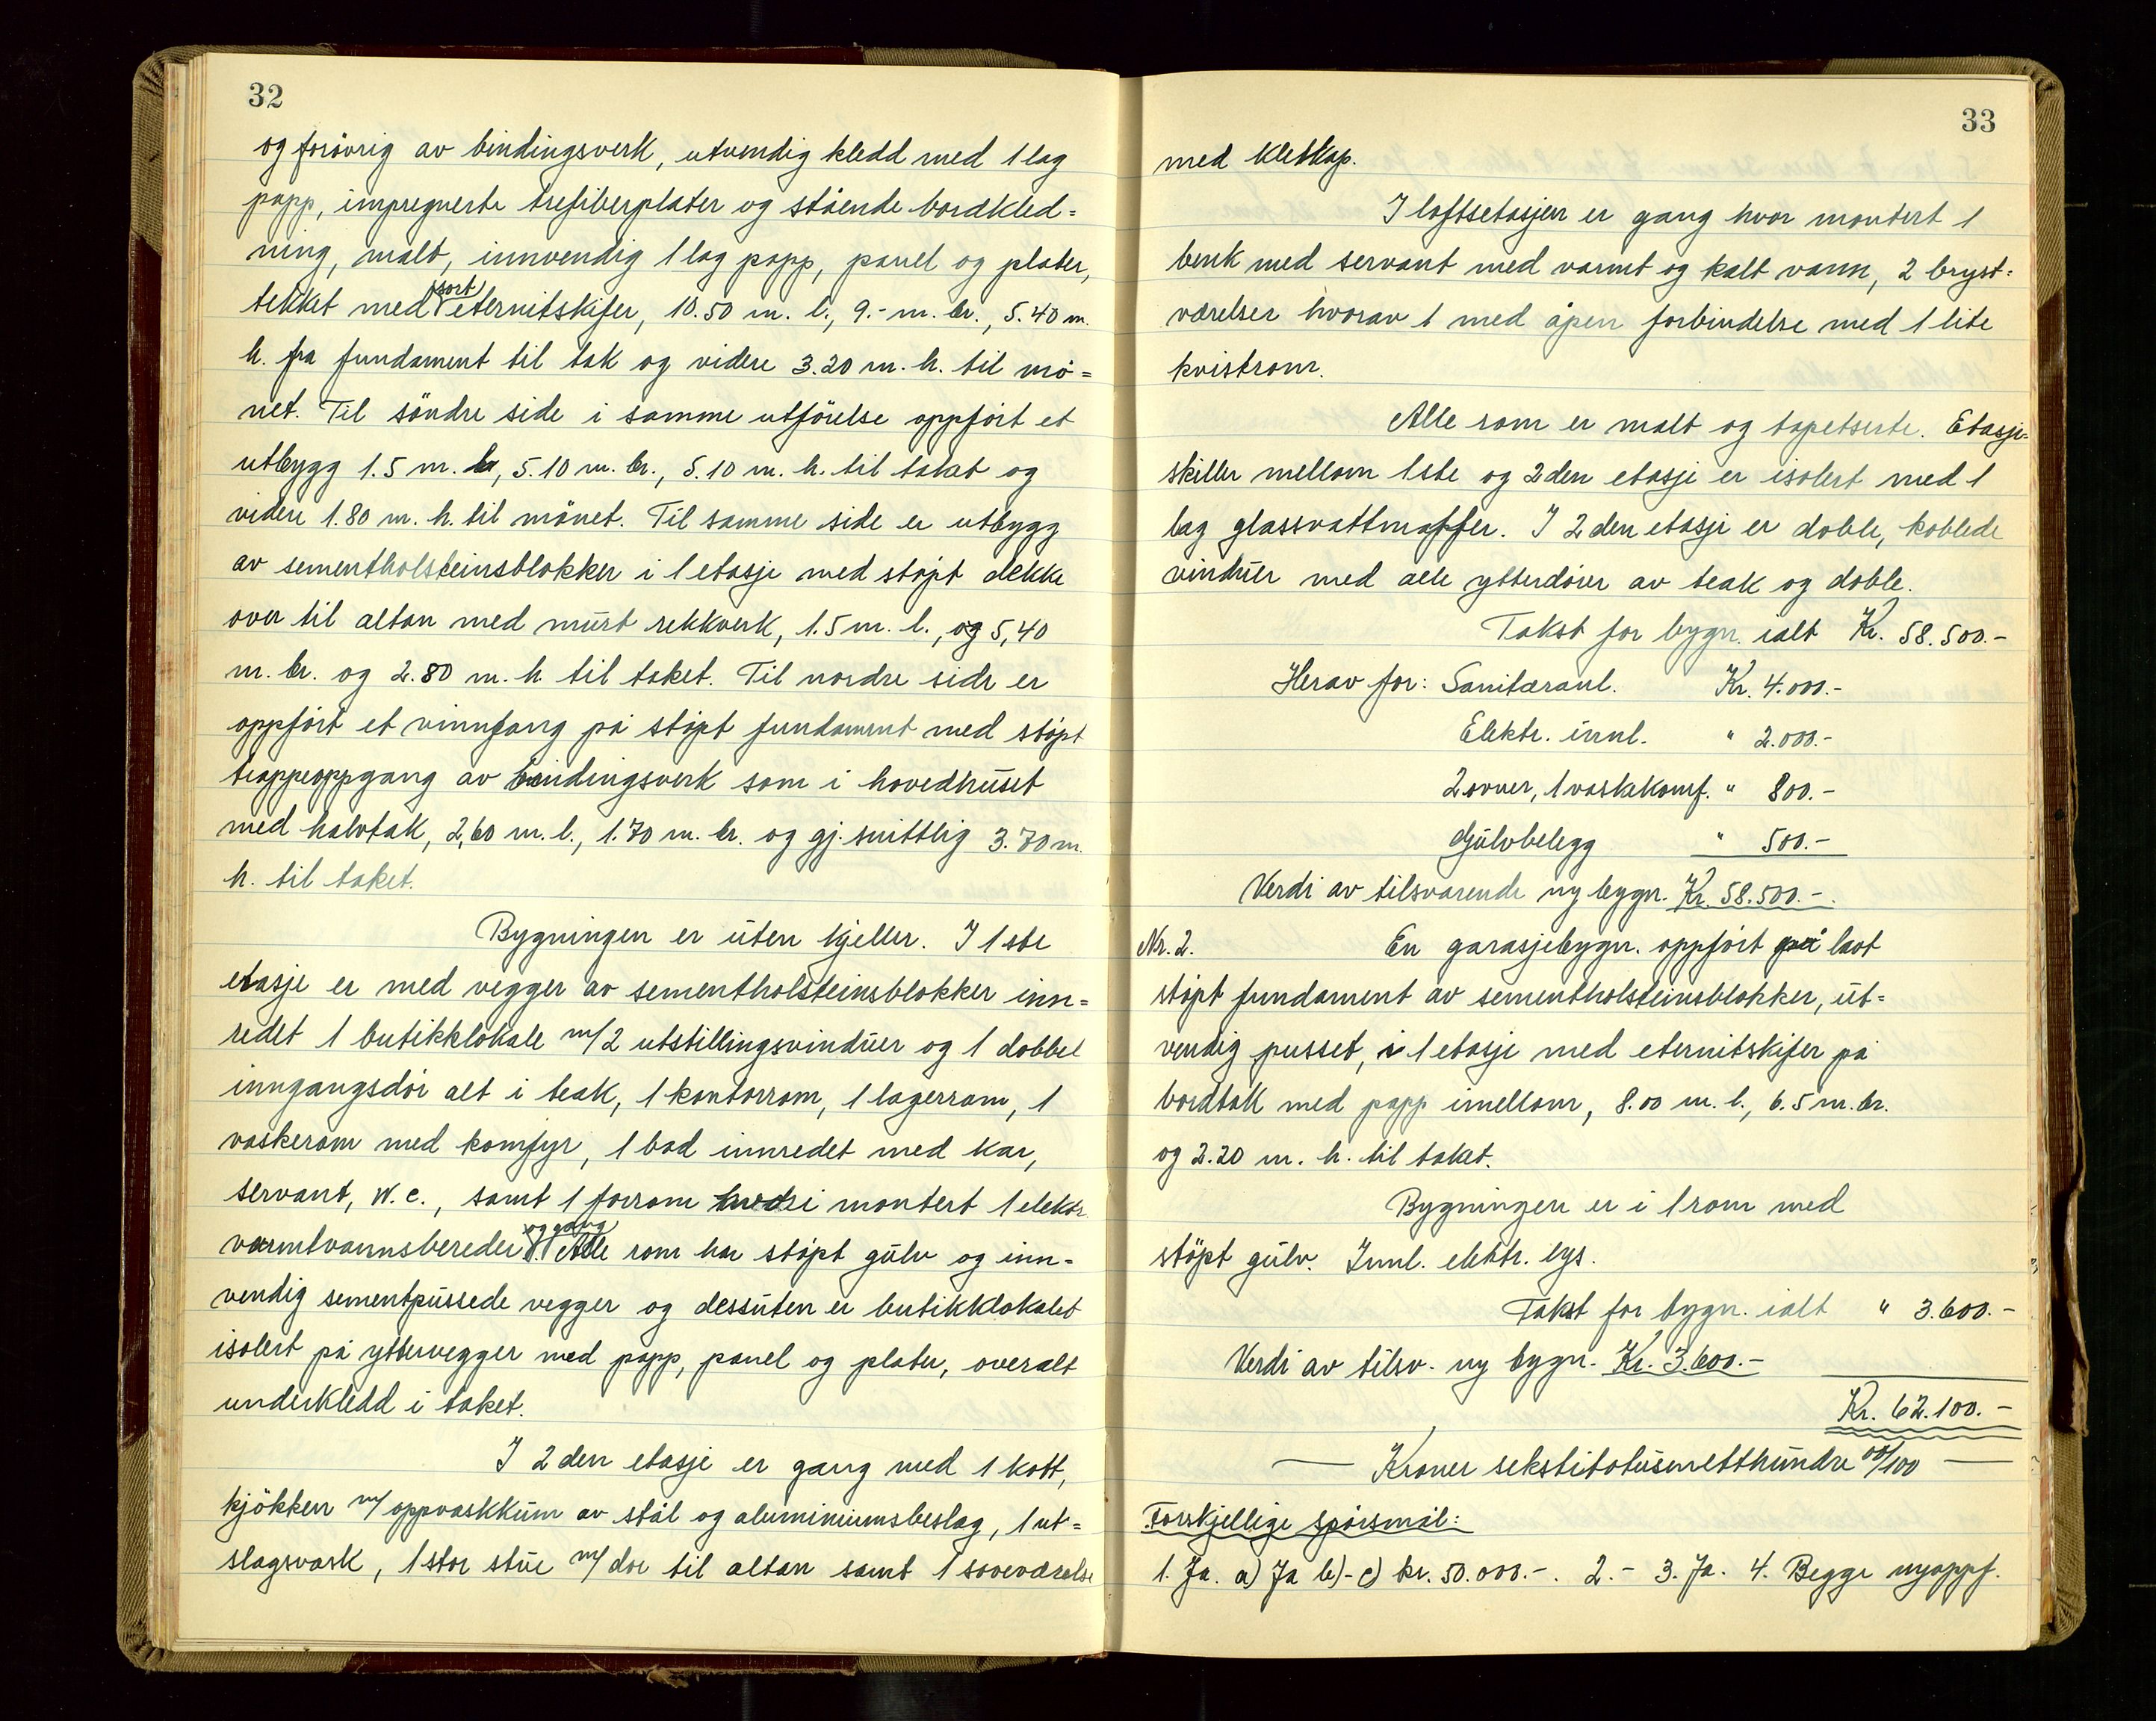 32
og forövrig av bindingsverk, utvendig kledd med 1 lag
papp, impregnerte trefiberplater og stående bordkled=
ning, malt, innvendig 1 lag papp, panel og plater,
sort
tekket med eternitskifer, 10.50 m. l., 9.- m. br., 5.40 m.
h. fra fundament til tak og videre 3.20 m. h. til mö=
net. Til söndre side i samme utförelse oppfört et
utbygg 1.5 m. l, 5.10 m. br., 5.10 m. h. til taket og
videre 1.80 m. h. til mönet. Til samme side er utbygg
av sementholsteinsblokker i 1 etasje med stöpt dekke
over til altan med murt rekkverk, 1.5 m. l., og 5,40
m. br. og 2.80 m. h. til taket. Til nordre side er
oppfört et vinnfang på stöpt fundament med stöpt
trappeoppgang av bindingsverk som i hovedhuset
med halvtak, 2,60 m. l., 1.70 m. br. og gj. snittlig 3.70 m.
h. til taket.
Bygningen er uten kjeller. I 1ste
etasje er med vegger av sementholsteinsblokker inn=
redet 1 butikklokale m/2 utstillingsvinduer og 1 dobbel
inngangsdör alt i teak, 1 kontorrom, 1 lagerrom, 1
vaskerom med komfyr, 1 bad innredet med kar,
servant, w.c., samt 1 forrom hvori montert 1 elektr.
og gang
varmtvannsbereder. Alle rom har stöpt gulv og inn=
vendig sementpussede vegger og dessuten er butikklokalet
isolert på yttervegger med papp, panel og plater, overalt
underkledd i taket.
I 2den etasje er gang med 1 kott,
kjökken m/ oppvaskkum av stål og aluminiumsbeslag, 1 ut=
slagsvask, 1 stor stue m/ dör til altan samt 1 soveværelse
33
med kleskap.
I loftsetasjen er gang hvor montert 1
benk med servant med varmt og kalt vann, 2 bryst=
værelser hvorav 1 med åpen forbindelse med 1 lite
kvistrom.
Alle rom er malt og tapetserte. Etasje=
skiller mellom 1ste og 2den etasje er isolert med 1
lag glassvattmatter. I 2den etasje er doble, koblede
vinduer med alle ytterdörer av teak og doble.
Takst for bygn. ialt Kr. 58.500.-
Herav for: Sanitæranl. Kr. 4.000.-
Elektr. innl. " 2.000.-
2 ovner, 1 vaskekomf. " 800.-
Gulvbelegg " 500.-
Verdi av tilsvarende ny bygn. Kr. 58.500.-.
Nr. 2. En garasjebygn. oppfört på lavt
stöpt fundament av sementholsteinsblokker, ut=
vendig pusset, i 1 etasje med eternitskifer på
bordtak med papp imellom, 8.00 m. l., 6.5 m. br.
og 2.20 m. h. til taket.
Bygningen er i 1 rom med
stöpt gulv. Innl. elektr. lys.
Takst for bygn. ialt " 3.600.-
Verdi av tilsv. ny bygn. Kr. 3.600.-
Kr. 62.100.-
— Kroner sekstitotusenetthundre 00/100 —
Forskjellige spörsmål:
1. Ja. a) Ja b)- c) kr. 50.000.-. 2.- 3. Ja. 4. Begge nyoppf.